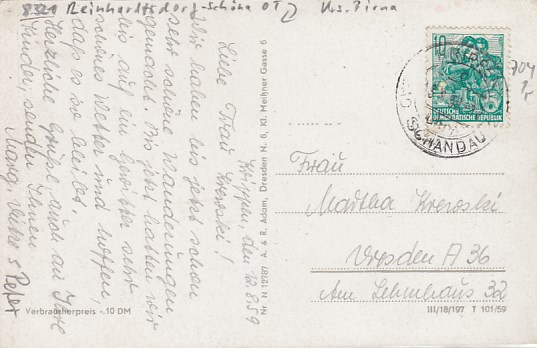 8321 Reinhardtsdorf-Schöna OT Krs. Pirna
Krippen, den 12.8.59
Liebe Frau Kreroski!
Wir haben bis jetzt schon
sehr schöne Wanderungen
gemacht. Bis jetzt hatten wir
bis auf ein Gewitter sehr
schönes Wetter und hoffen,
daß es so bleibt.
Herzliche Grüße auch an Ihre
Kinder, senden Ihnen
Marg. u. Peter
Verbraucherpreis -.10 DM
Nr. N 12787 A. & R. Adam, Dresden N 6, Kl. Meißner Gasse 6
10
DEUTSCHE
DEMOKRATISCHE REPUBLIK
SCHANDAU
704
Pr
Frau
Martha Kreroski
Dresden A 36
Am Lehmhaus 32
III/18/197 T 101/59